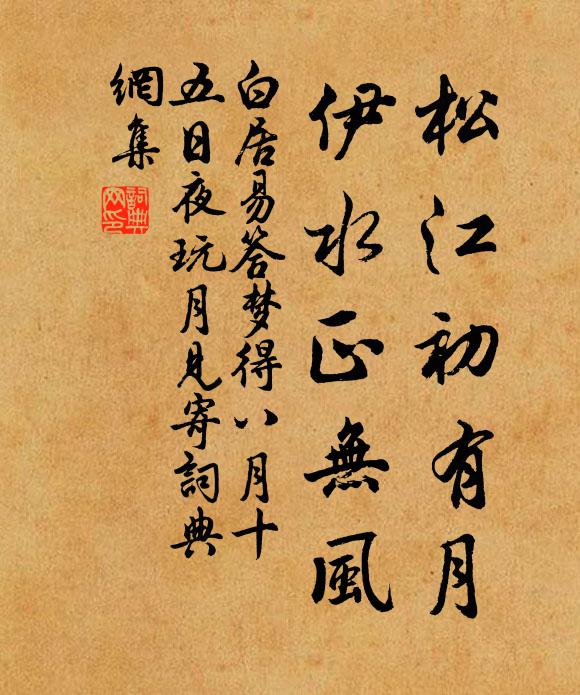 松江初有月
伊水正無風
白居易答梦得八月十
五日夜玩月見寄詞典
網集
詞典
网印